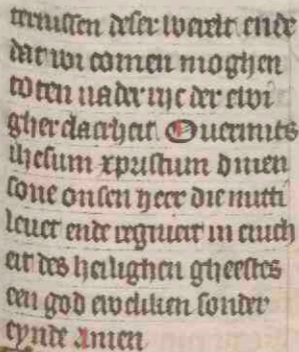 ternissen deser werelt ende
dat wi comen moghen
to ten vader hie der ewi
gher claerheit Ouermits
ihesum xpristum dinen
sone onsen heer die mitti
leuet ende regniert in einich
eit des heilighen gheestes
een god eweliken sonder
eynde Amen